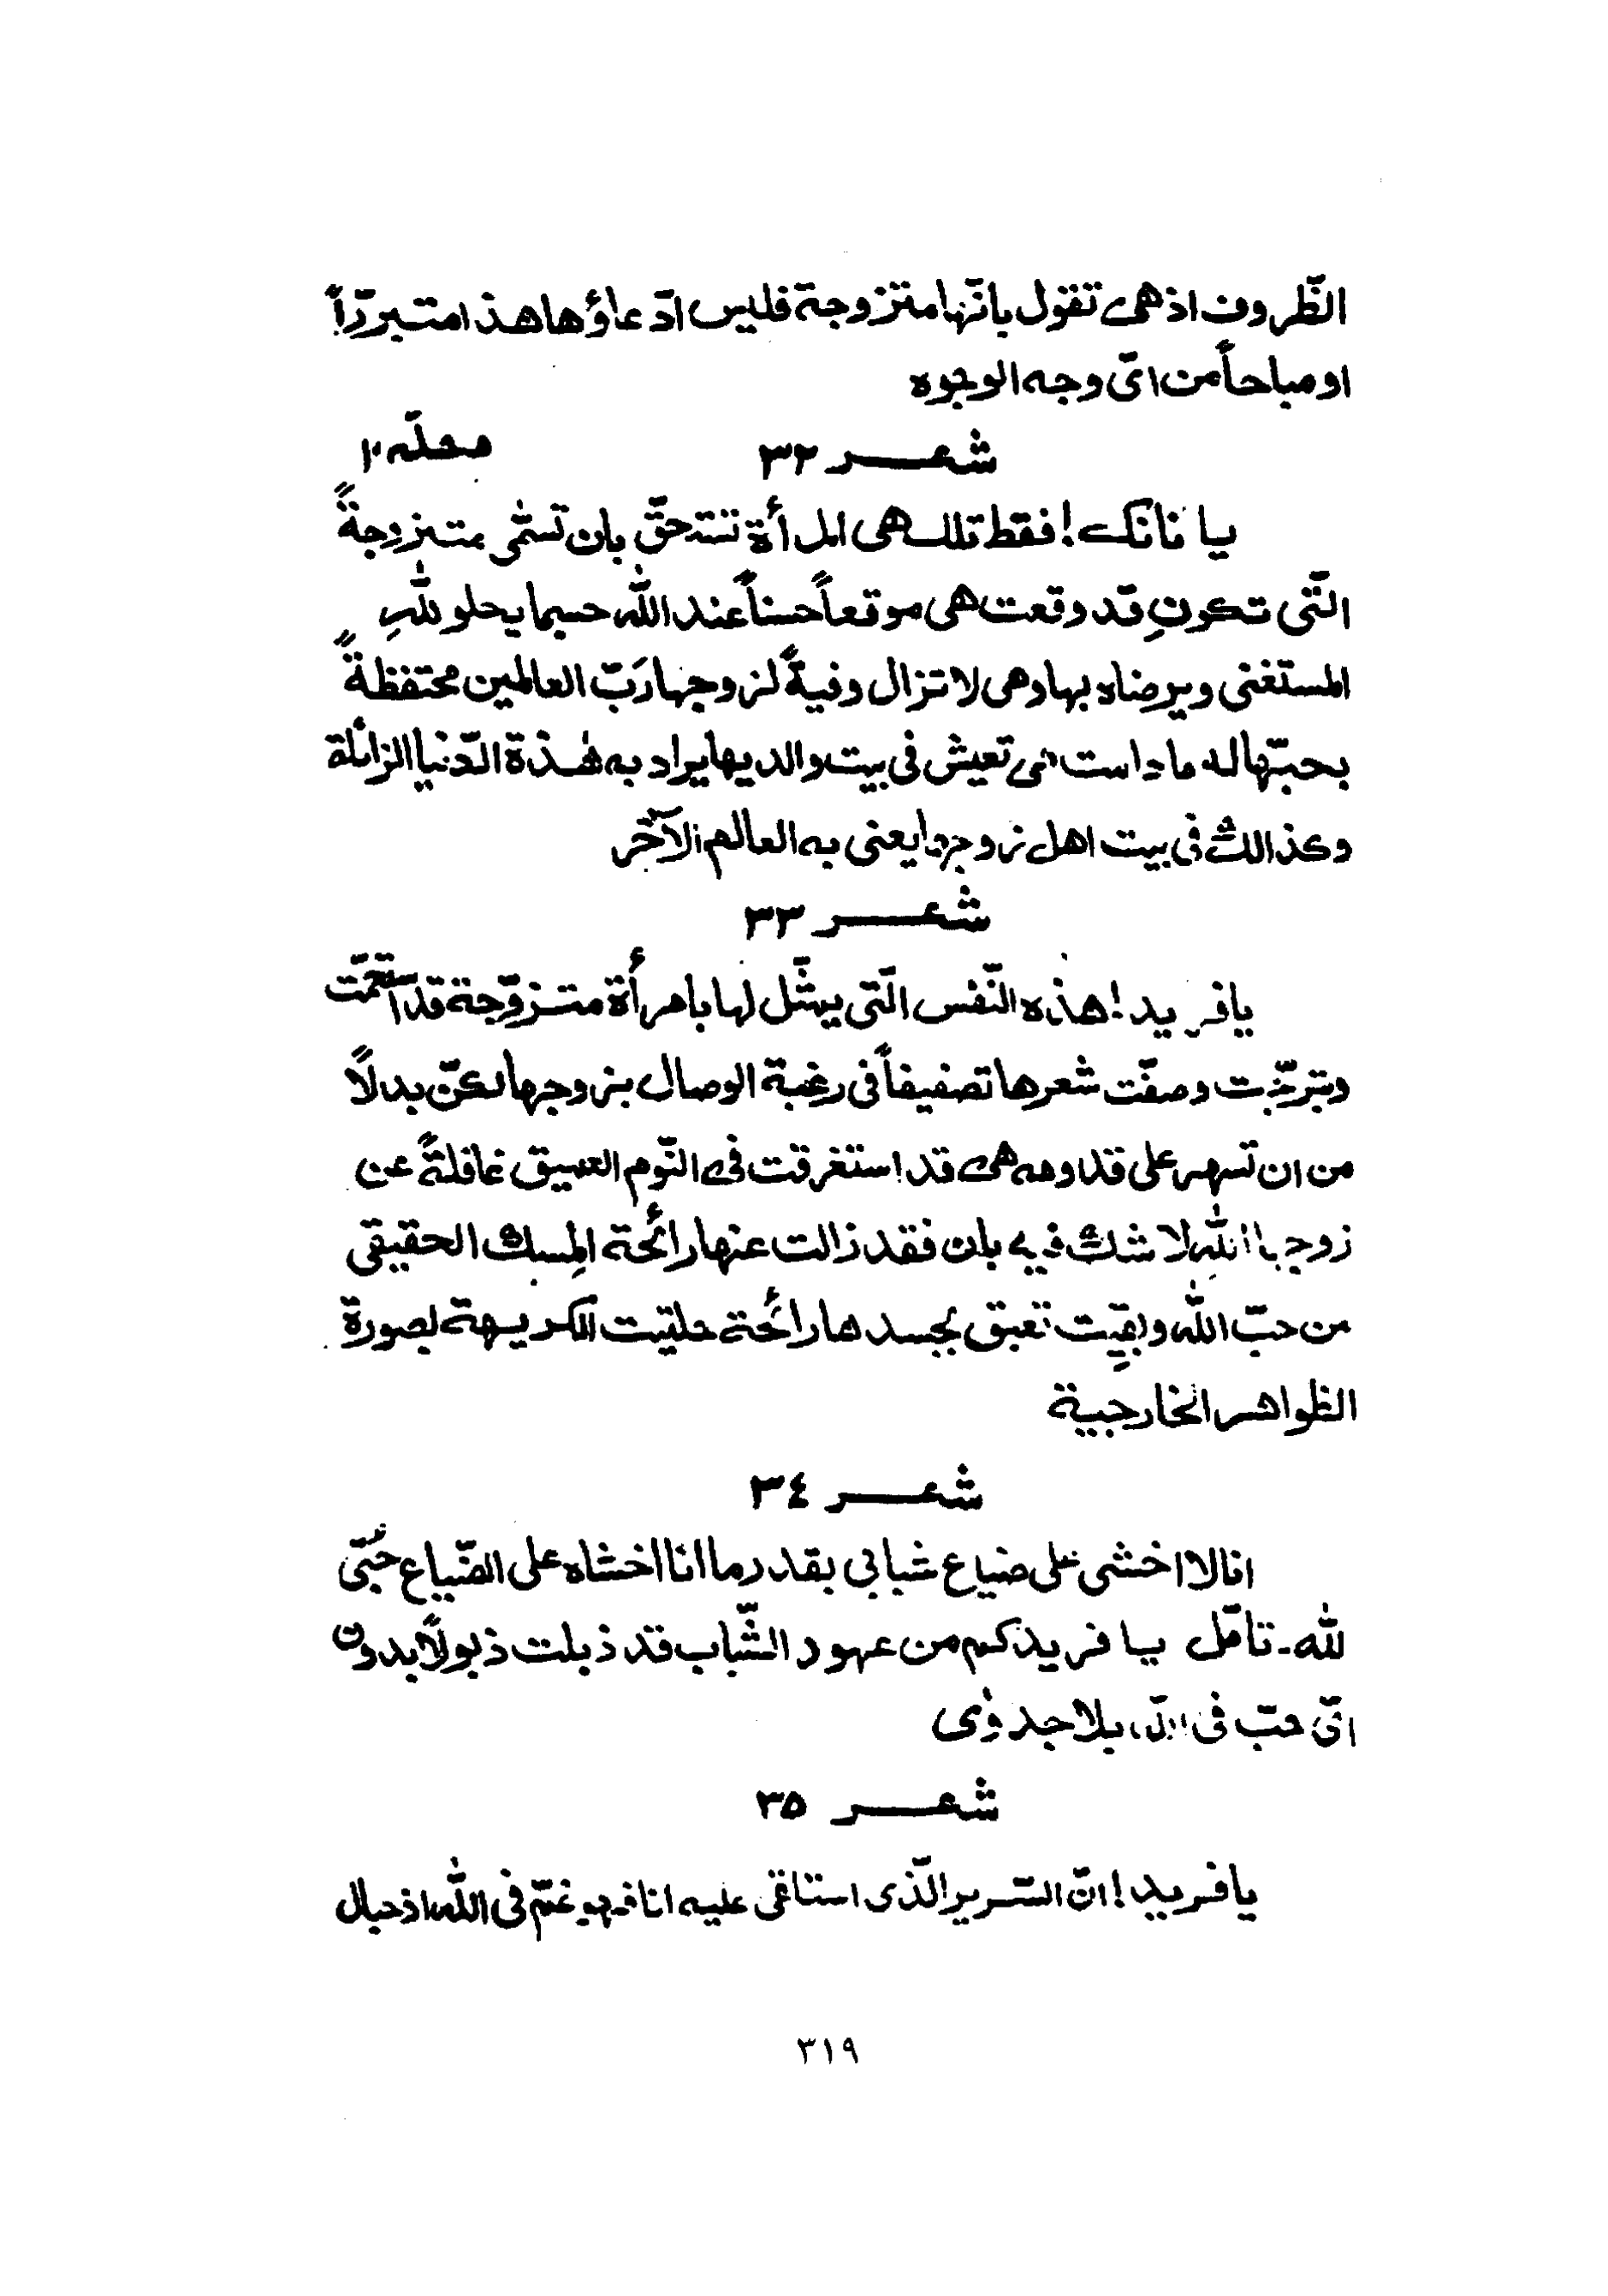 الظّروف اذ هى تقول بانّها متزوجة فليس ادّعاؤها هذا متبررّاً
او مباحاً من اىّ وجه الوجوه
شعر ٣٢ محلّه ١
يا نانك! فقط تلك هى المرأة تستحقّ بان تسمّى متزوجةً
الّتى تكون قد وقعت هى موقعاً حسناً عند الله حسبما يحلو للهِ
المستغنى ويرضاه بها وهى لا تزال وفيةً لزوجها رَبّ العالمين محتفظةً
بحبّها له ما دامت هى تعيش فى بيت والديها يراد به هٰذة الدّنيا الزائلة
وكذالك فى بيت اهل زوجها يعنى به العالم الآخر
شعر ٣٣
يا فريد! هذه النّفس الّتى يمثّل لها بامرأة متزوّجة قد استحمّت
وتبرّجت وصفّت شعرها تصفيفاً فى رغبة الوصال بزوجها لكنّ بدلاً
من ان تسهر على قدومه هى قد استغرقت فى النّوم العميق غافلةً عن
زوجها الله لا شكّ فيه بان فقد زالت عنها رائحة المِسك الحقيقى
من حبّ الله وبقيت تعبق بجسدها رائحة حلتيت الكريهة لصورة
الظواهر الخارجية
شعر ٣٤
انا لا اخشى على ضياع شبابى بقدر ما انا اخشاه على الضّياع حُبّى
لله ـ تأمّل يا فريد كم من عهود الشّباب قد ذبلت ذبولاً بدون
اىّ حبّ فى الله بلا جدوٰى
شعر ٣٥
يا فريد! انّ السّرير الّذى استلقى عليه انا فهو غمّ فى الله اذ حبال
٣١٩